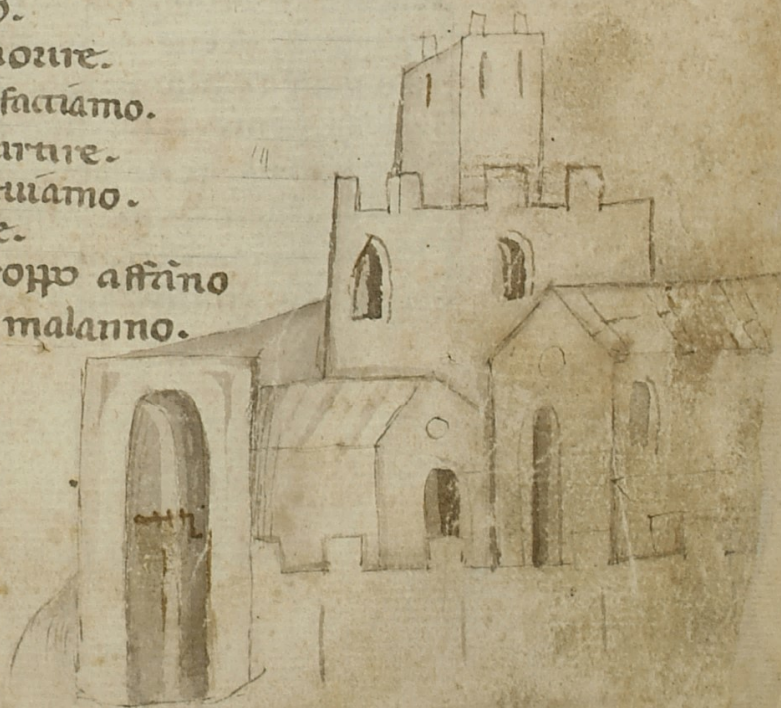 o.
morire.
facciamo.
artire.
uiamo.
e.
oppo affāno
malanno.